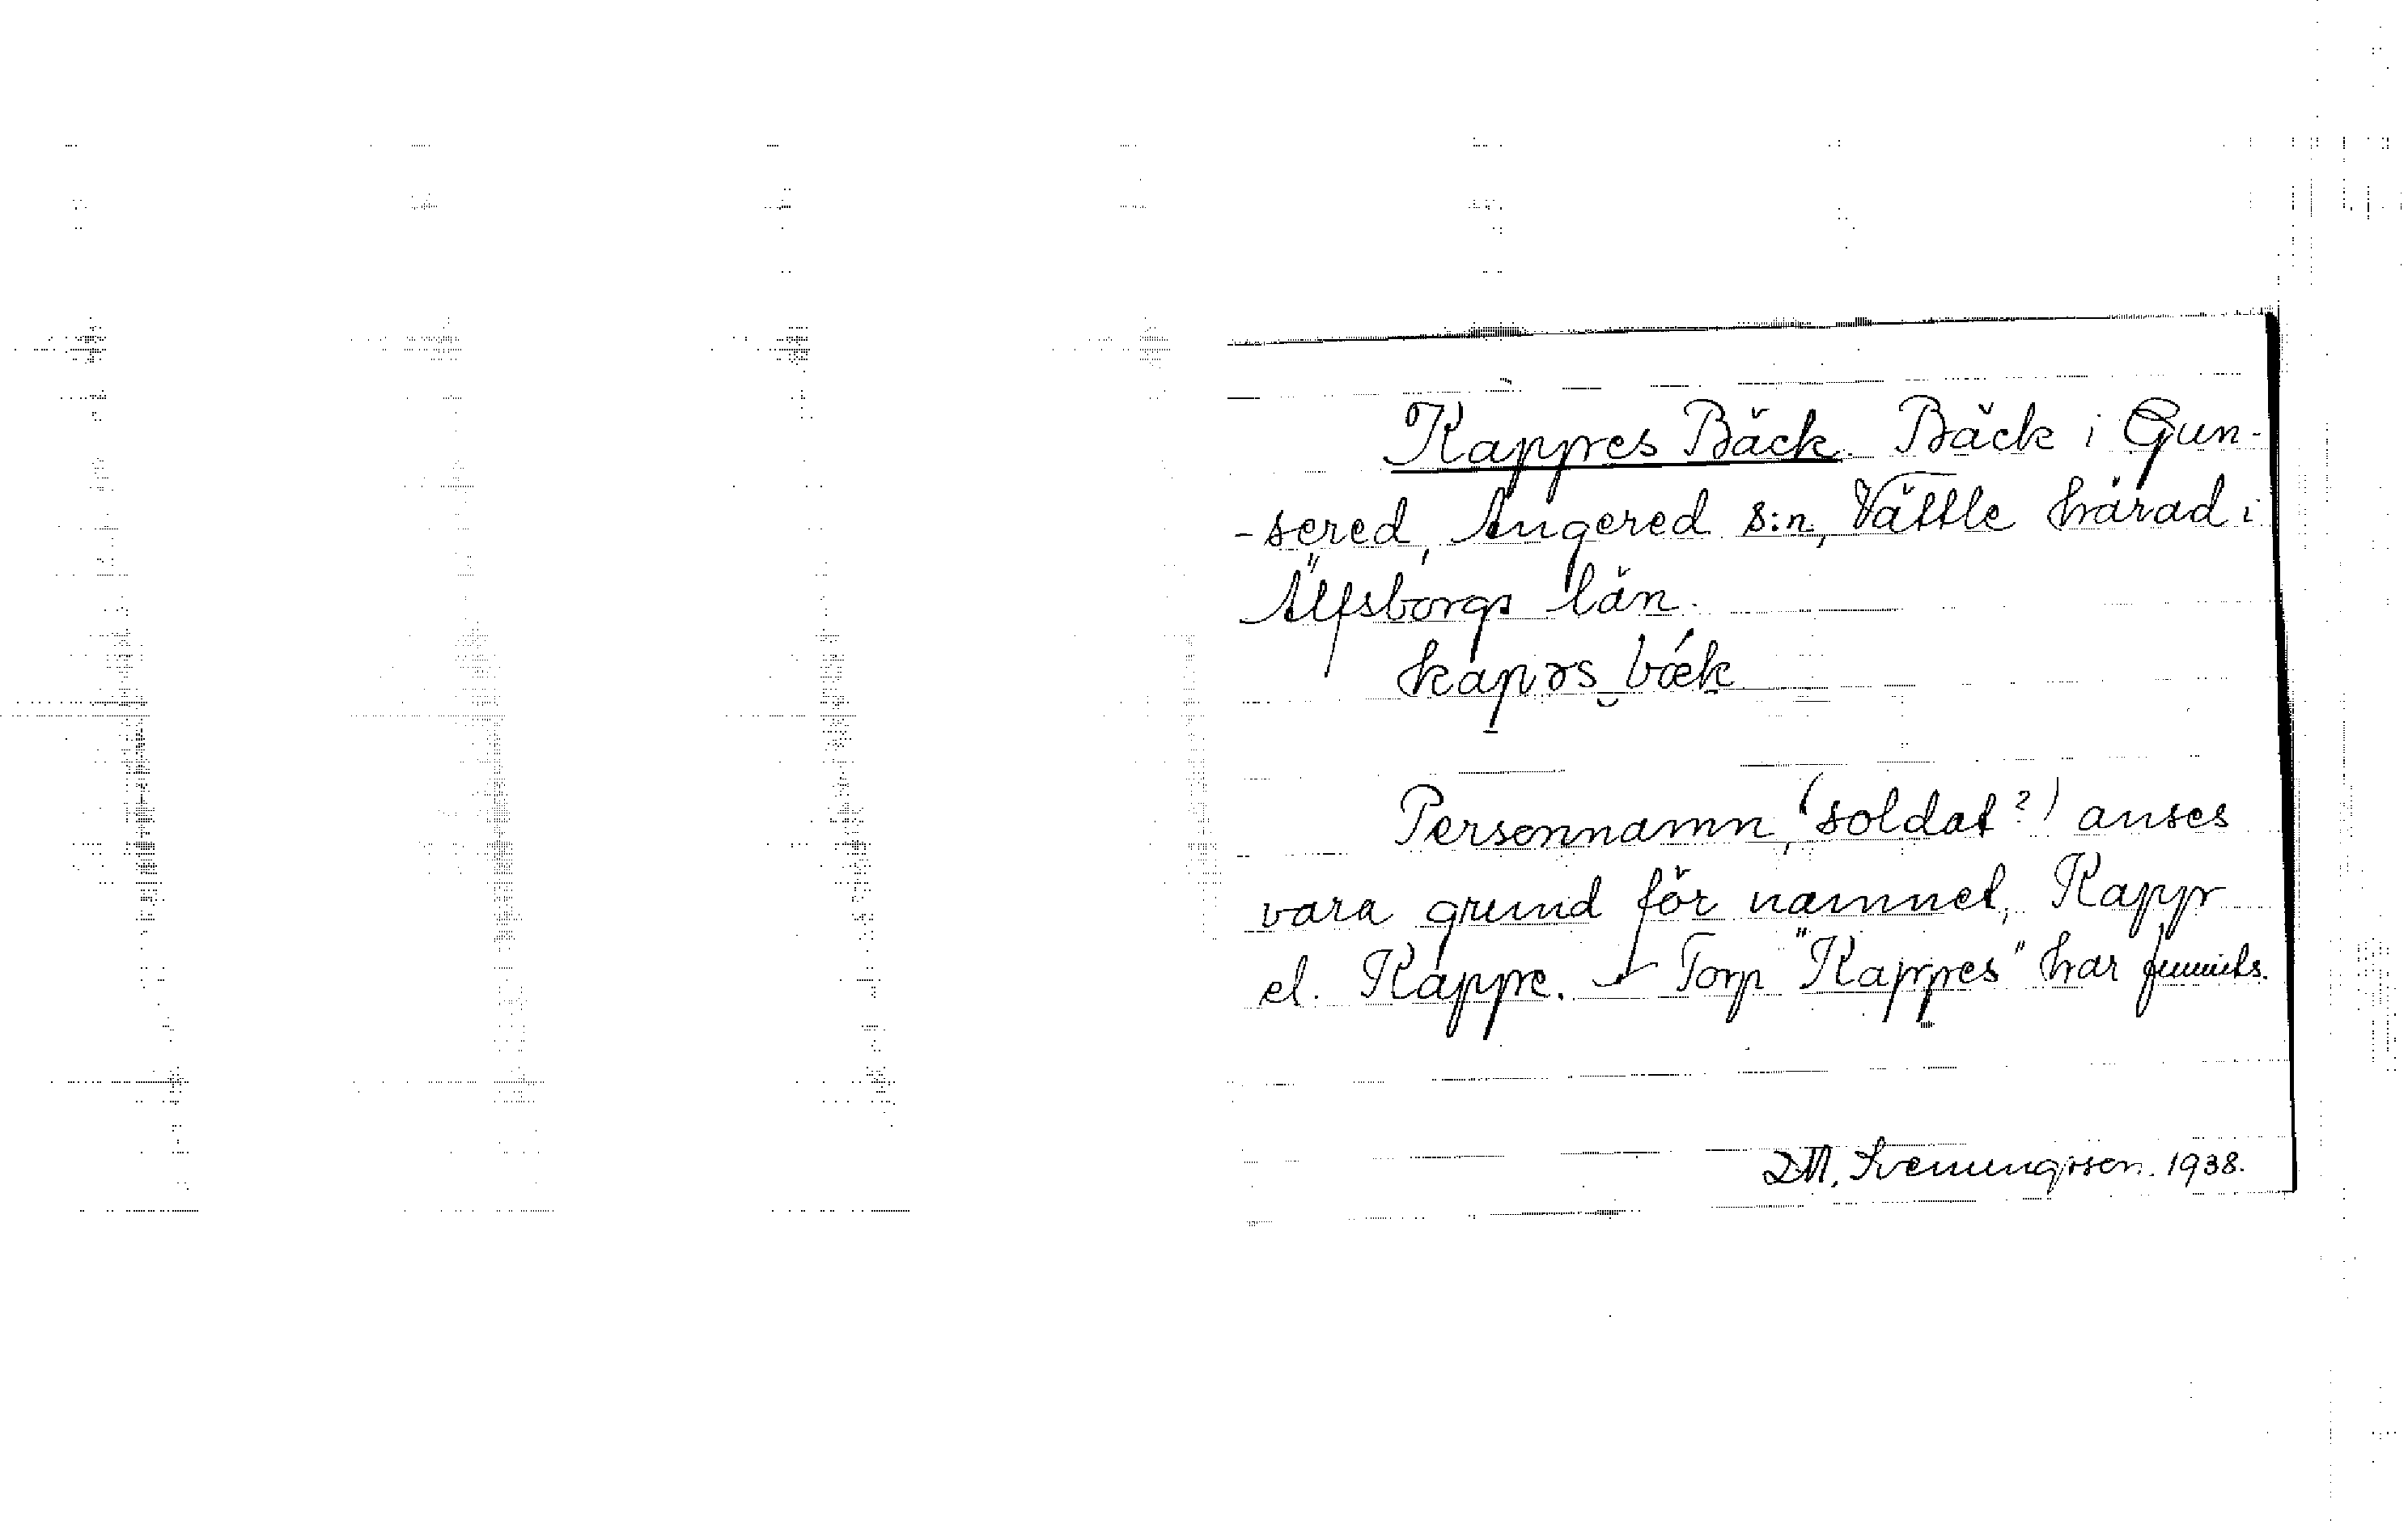 Kappres Bäck. Bäck i Gun-
-sered, Angered s:n, Vättle härad i
Älfsborgs län.
kapəs bæk
Personnamn, (soldat?) anses
vara grund för namnet, Kappr
el. Kappre. – Torp "Kappes" har funnits.
D.M. Svenungsson. 1938.